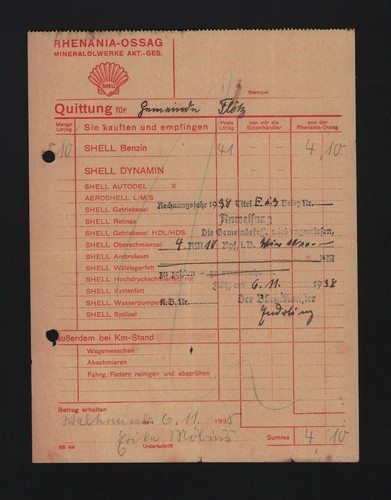 RHENANIA-OSSAG
MINERALÖLWERKE AKT.-GES.
SHELL
Stempel
Quittung für Gemeinde Flötz
Menge Ltr/kg Sie kauften und empfingen Preis Ltr/kg von mir als Einzelhändler von der Rhenania-Ossag
10 SHELL Benzin 41 4,10
SHELL DYNAMIN
SHELL AUTOOEL X
AEROSHELL L/M/S Rechnungsjahr 1938 Titel Beleg Nr.
SHELL Getriebeöl
SHELL Retinax Anweisung
SHELL Getriebeoel HDL/HDS Die Gemeindekasse wird angewiesen,
SHELL Oberschmieröl 4 RM 10 Rpf. i.B.
SHELL Ambroleum RM
SHELL Wälzlagerfett
SHELL Hochdruckschmierfett
SHELL Kettenfett 6. 11. 1938
SHELL Wasserpumpenfett K.B. Nr. Der Bürgermeister
SHELL Spüloel
Außerdem bei Km-Stand
Wagenwaschen
Abschmieren
Fahrg. Federn reinigen und absprühen
Betrag erhalten
6. 11. 1938
Erika Möbius
Unterschrift
Summe 4 10